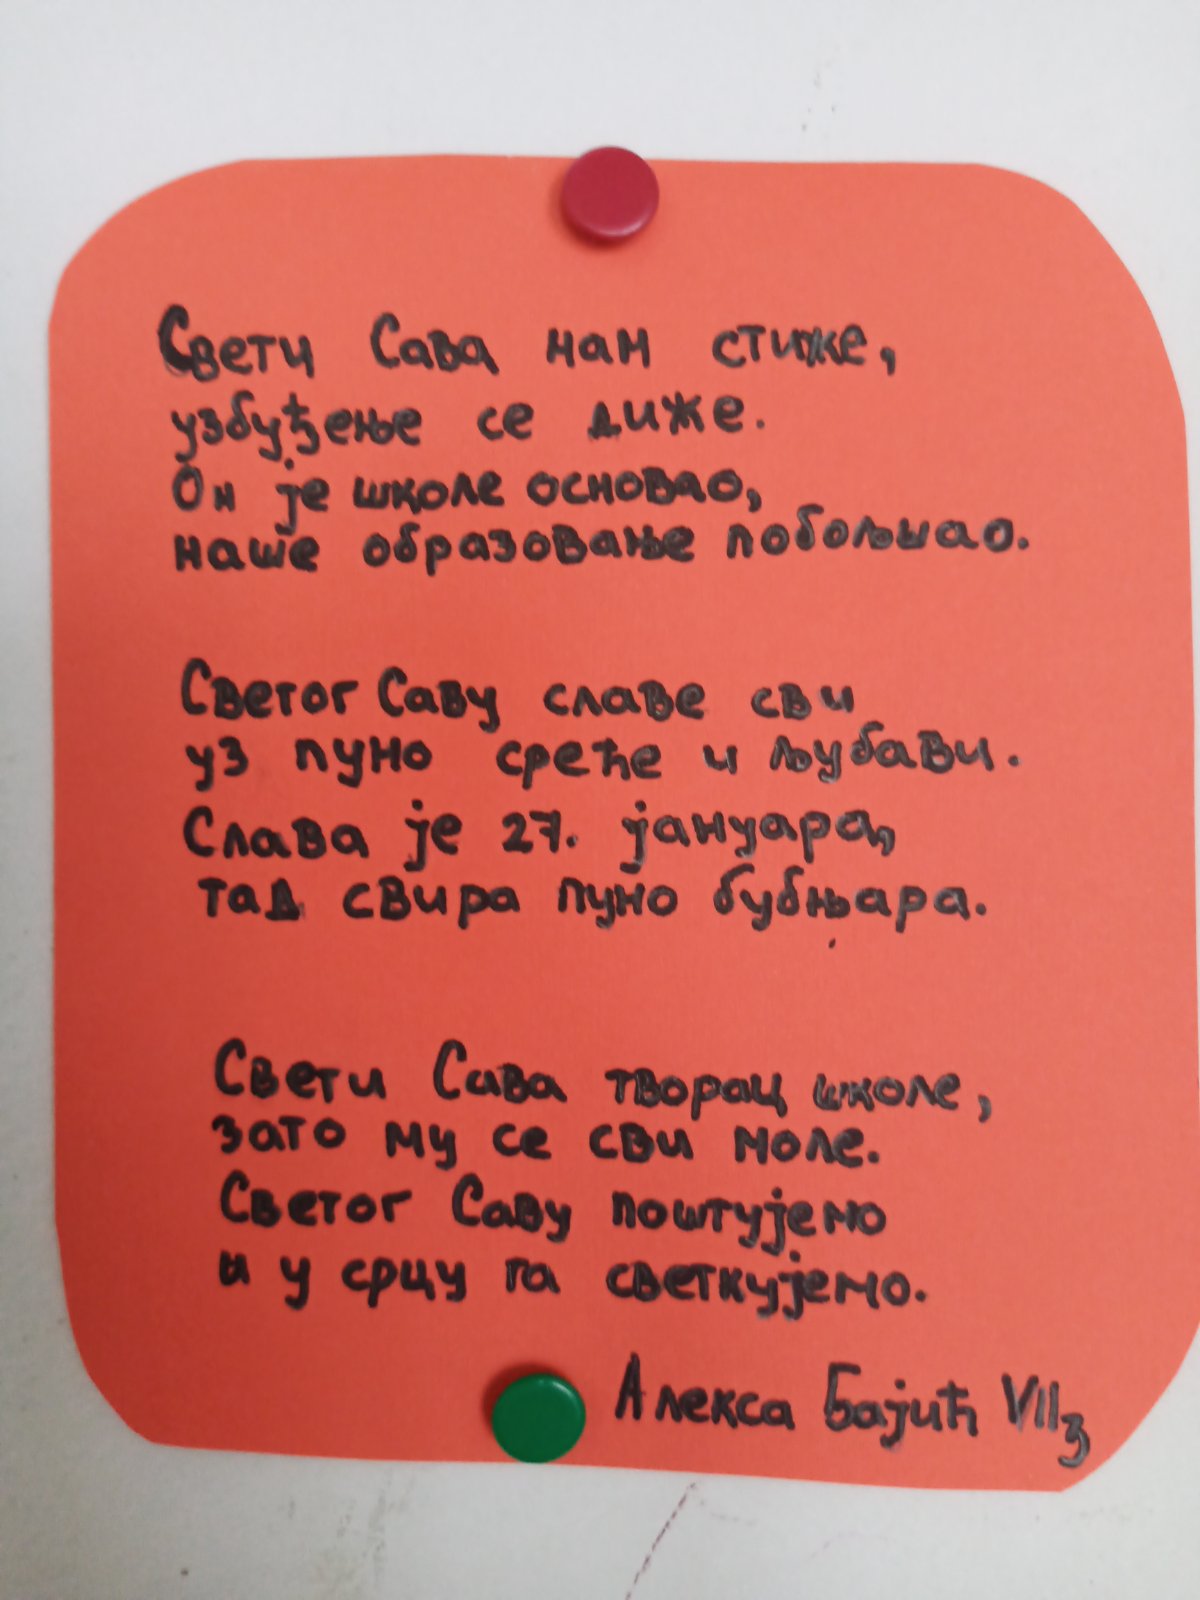 Свети Сава нам стиже,
узбуђење се диже.
Он је школе основао,
наше образовање побољшао.
Светог Саву славе сви
уз пуно среће и љубави.
Слава је 27. јануара,
тад свира пуно бубњара.
Свети Сава творац школе,
зато му се сви моле.
Светог Саву поштујемо
и у срцу га светкујемо.
Алекса Бајић VII₃